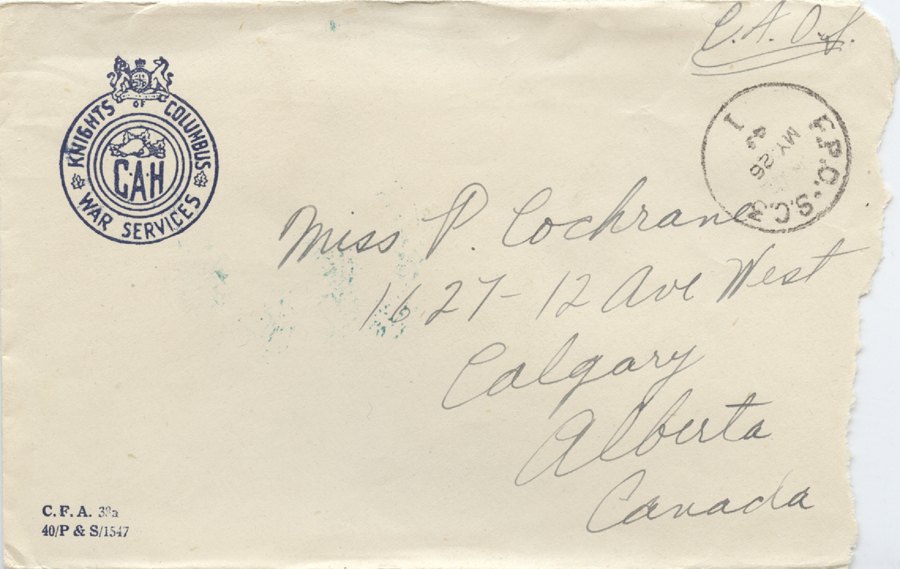 C.A.O.S.
KNIGHTS OF COLUMBUS
CAH
WAR SERVICES
F.P.O.-S.C.3
1
MY 26
Miss P. Cochrane
1627-12 Ave West
Calgary
Alberta
Canada
C. F. A. 38a
40/P & S/1547